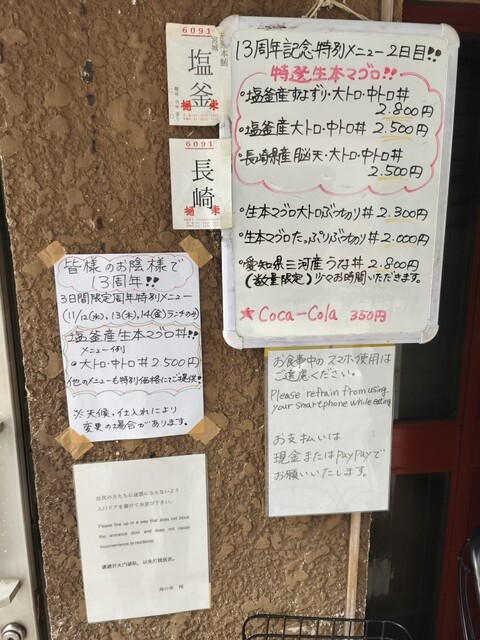 6091
宮城
塩釜
6091
長崎
13周年記念特別メニュー2日目!!
特選生本マグロ!!
・塩釜産すよずり・大トロ・中トロ丼
2.800円
・塩釜産大トロ・中トロ丼 2.500円
・長崎県産 脳天・大トロ・中トロ丼
2.500円
・生本マグロ大トロぶつ切り丼 2.300円
・生本マグロたっぷりぶつ切り丼 2.000円
・愛知県三河産うな丼 2.800円
(数量限定) 少々お時間いただきます。
★ Coca-Cola 350円
皆様のお陰様で
13周年!!
3日間限定周年特別メニュー
(11/12(水)、13(木)、14(金)ランチのみ)
塩釜産生本マグロ丼!!
メニュー例
・大トロ・中トロ丼 2.500円
他のメニューも特別価格にてご提供!
※天候・仕入れにより
変更の場合があります。
お食事中のスマホ使用は
ご遠慮ください。
Please refrain from using
your smartphone while eating
お支払いは
現金またはPayPayで
お願いいたします。
住民の方たちに迷惑にならないよう
入口ドアを避けてお並び下さい。
Please line up in a way that does not block
the entrance door and does not cause
inconvenience to residents.